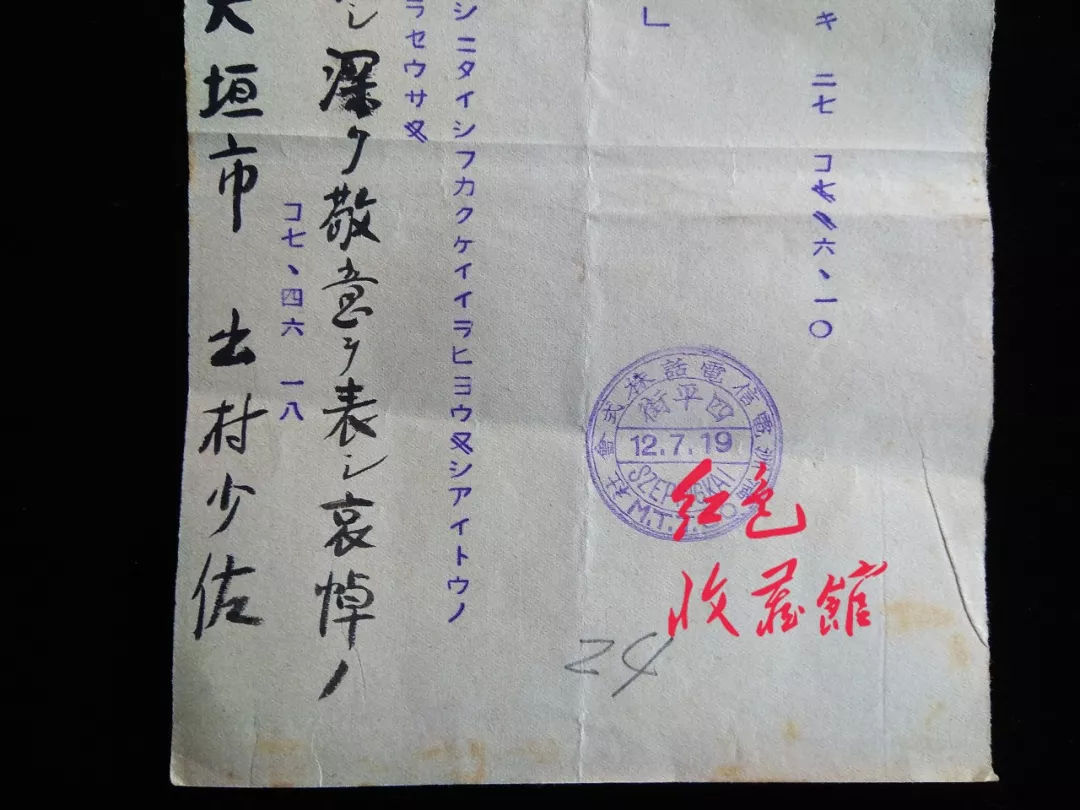 キ 二七 コ 六、一〇
」
シニタイシフカクケイイラヒヨウ シアイトウノ
ラセウサ
シ深ク敬意ヲ表シ哀悼ノ
コ七、四六 一八
大垣市 出村少佐
滿洲電信電話株式會社
四平街
12.7.19
SZEPINGKAI
M.T.T.CO.
红色
收藏館
24